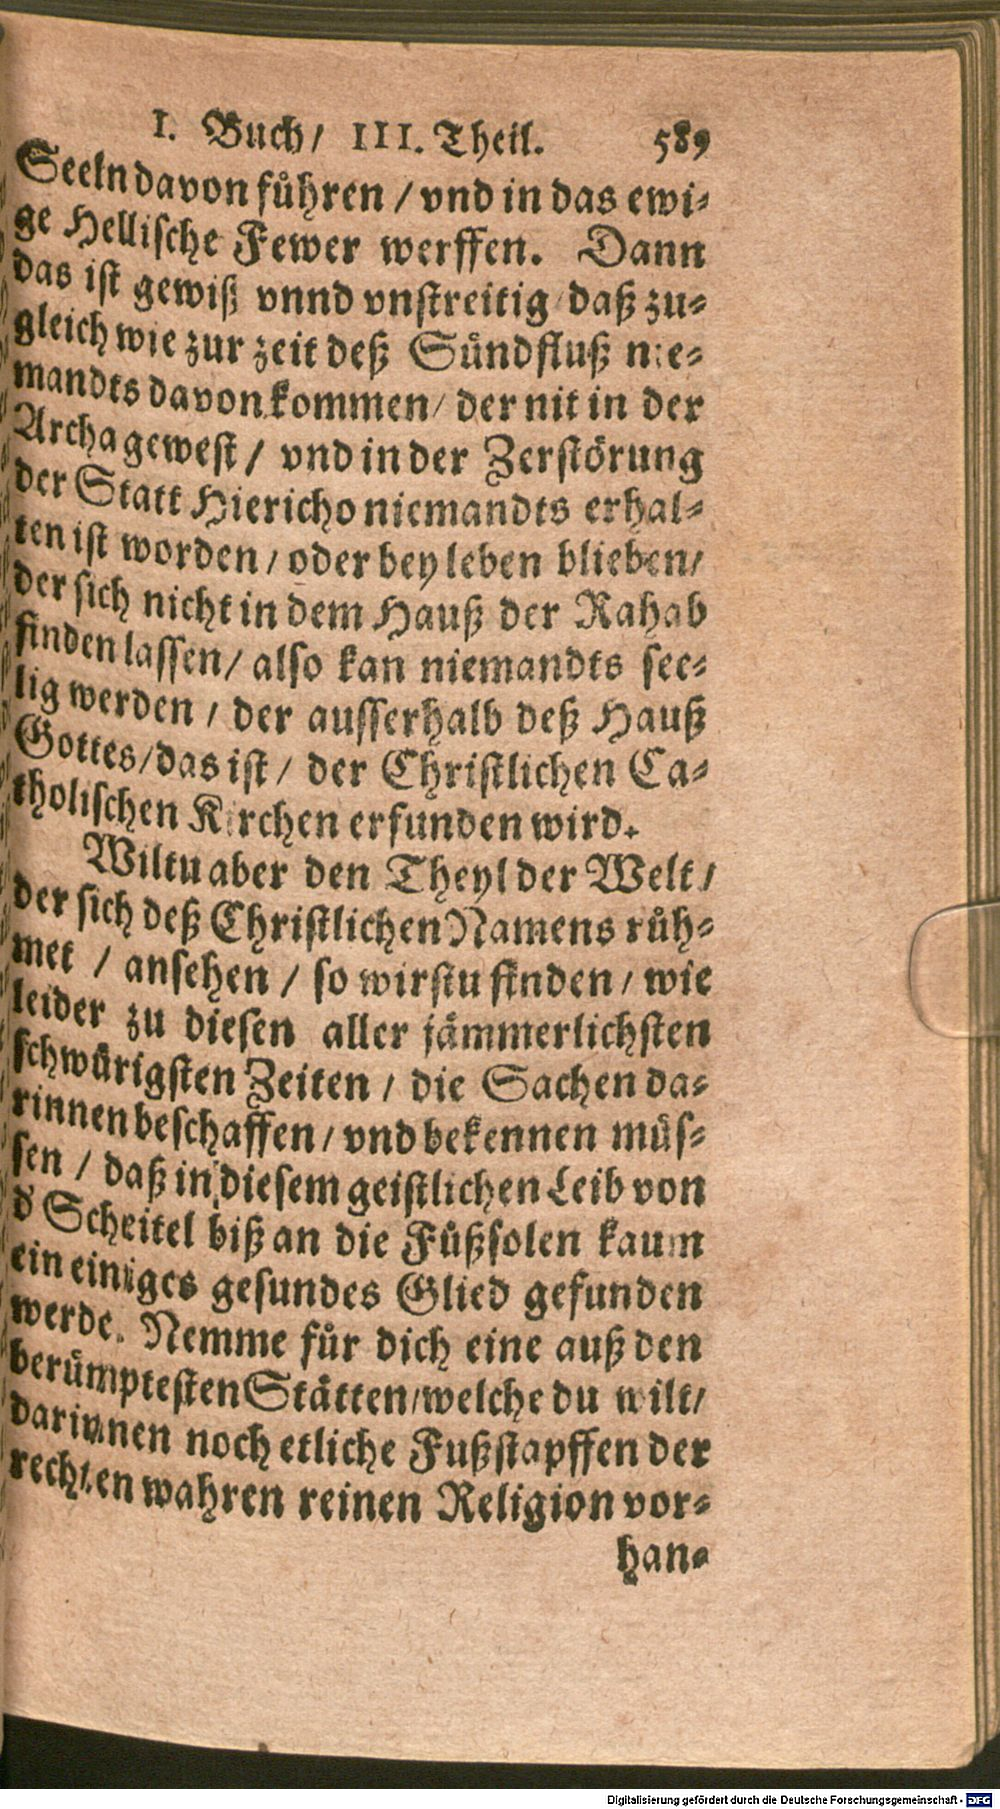 I. Buch/ III. Theil. 589
Seeln davon führen / vnd in das ewi-
ge Hellische Fewer werffen. Dann
das ist gewiß vnnd vnstreitig daß zu-
gleich wie zur zeit deß Sündfluß nie-
mandts davon kommen/ der nit in der
Archa gewest / vnd in der Zerstörung
der Statt Hiericho niemandts erhal-
ten ist worden / oder bey leben blieben/
der sich nicht in dem Hauß der Rahab
finden lassen / also kan niemandts see-
lig werden / der ausserhalb deß Hauß
Gottes / das ist / der Christlichen Ca-
tholischen Kirchen erfunden wird.
Wiltu aber den Theyl der Welt /
der sich deß Christlichen Namens rüh-
met / ansehen / so wirstu finden / wie
leider zu diesen aller jämmerlichsten
schwürigsten Zeiten / die Sachen da-
rinnen beschaffen / vnd bekennen müs-
sen / daß in diesem geistlichen Leib von
d' Scheitel biß an die Füßsolen kaum
ein einiges gesundes Glied gefunden
werde. Nemme für dich eine auß den
berümptesten Stätten/ welche du wilt/
darinnen noch etliche Fußstapffen der
rechten wahren reinen Religion vor-
han-
Digitalisierung gefördert durch die Deutsche Forschungsgemeinschaft - DFG